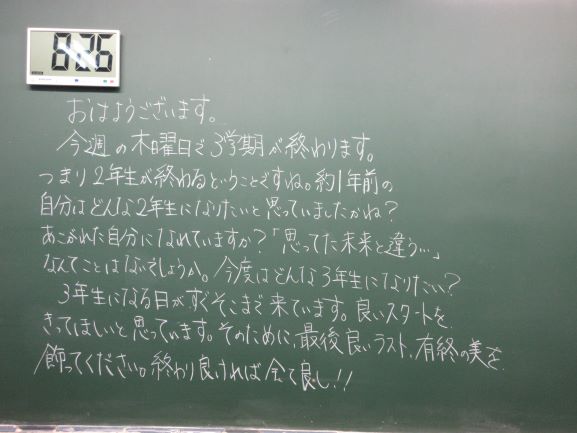 8:26
おはようございます。
今週の木曜日で3学期が終わります。
つまり2年生が終わるということですね。約1年前の
自分はどんな2年生になりたいと思っていましたかね?
あこがれた自分になれていますか?「思ってた未来と違う…」
なんてことはないでしょうか。今度はどんな3年生になりたい?
3年生になる日がすぐそこまで来ています。良いスタートを
きってほしいと思っています。そのために、最後良いラスト、有終の美を
飾ってください。終わり良ければ全て良し!!